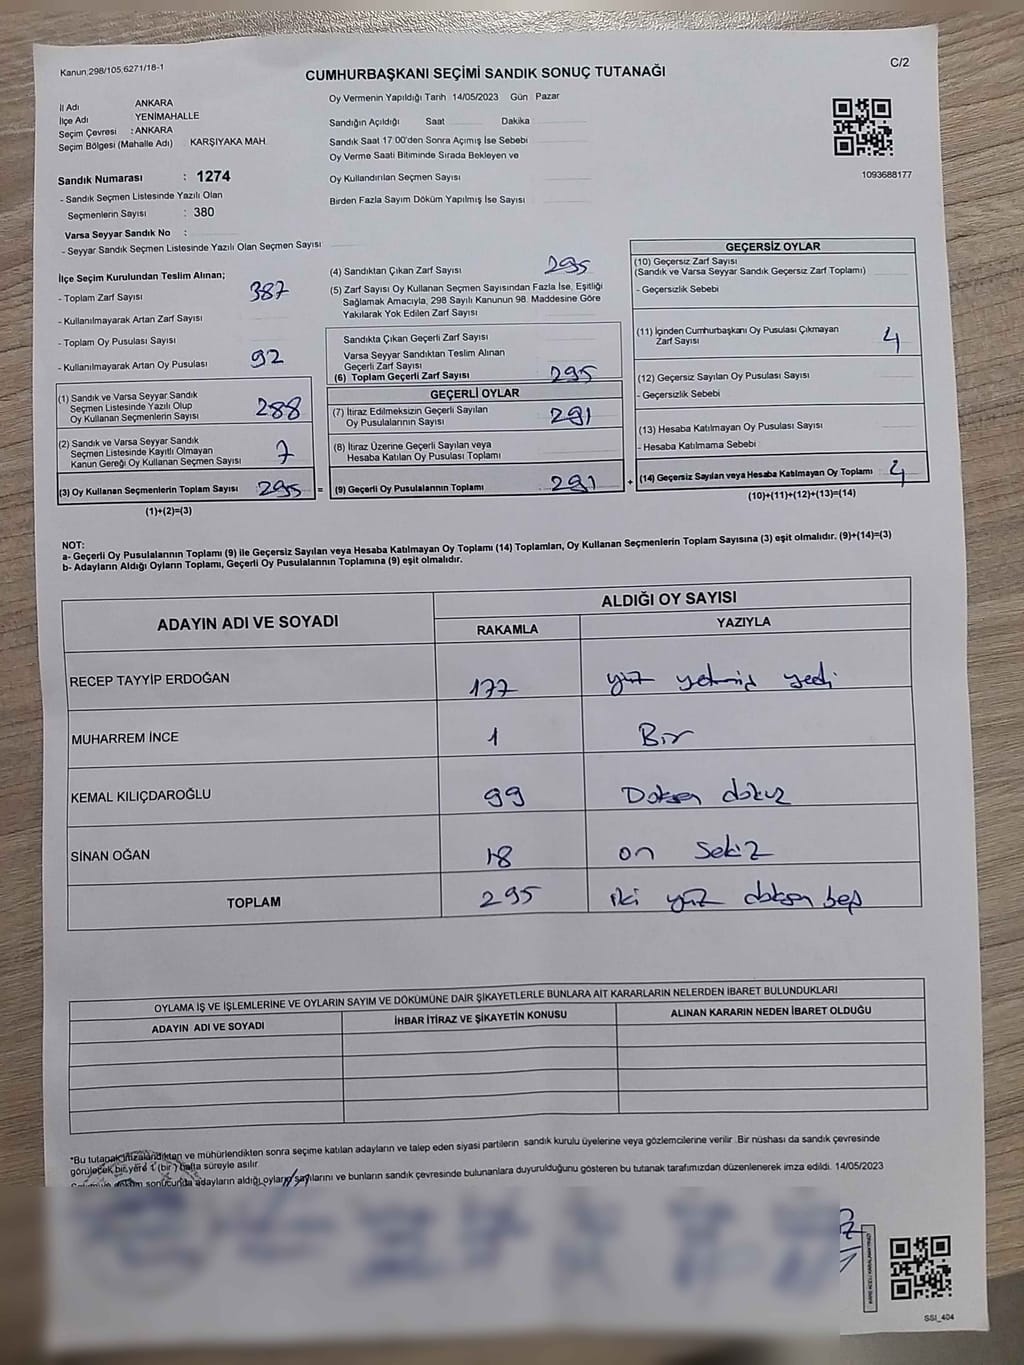 Kanun 298/105,6271/18-1
C/2
CUMHURBAŞKANI SEÇİMİ SANDIK SONUÇ TUTANAĞI
İl Adı ANKARA
İlçe Adı YENİMAHALLE
Seçim Çevresi : ANKARA
Seçim Bölgesi (Mahalle Adı) KARŞIYAKA MAH
Oy Vermenin Yapıldığı Tarih 14/05/2023 Gün Pazar
Sandığın Açıldığı Saat Dakika
Sandık Saat 17 00'den Sonra Açımış İse Sebebi
Oy Verme Saati Bitiminde Sırada Bekleyen ve
Oy Kullandırılan Seçmen Sayısı
Birden Fazla Sayım Döküm Yapılmış İse Sayısı
1093688177
Sandık Numarası : 1274
- Sandık Seçmen Listesinde Yazılı Olan
Seçmenlerin Sayısı : 380
Varsa Seyyar Sandık No :
- Seyyar Sandık Seçmen Listesinde Yazılı Olan Seçmen Sayısı
İlçe Seçim Kurulundan Teslim Alınan;
- Toplam Zarf Sayısı 387
- Kullanılmayarak Artan Zarf Sayısı
- Toplam Oy Pusulası Sayısı
- Kullanılmayarak Artan Oy Pusulası 92
(1) Sandık ve Varsa Seyyar Sandık
Seçmen Listesinde Yazılı Olup
Oy Kullanan Seçmenlerin Sayısı 288
(2) Sandık ve Varsa Seyyar Sandık
Seçmen Listesinde Kayıtlı Olmayan
Kanun Gereği Oy Kullanan Seçmen Sayısı 7
(3) Oy Kullanan Seçmenlerin Toplam Sayısı 295 =
(1)+(2)=(3)
(4) Sandıktan Çıkan Zarf Sayısı 295
(5) Zarf Sayısı Oy Kullanan Seçmen Sayısından Fazla İse, Eşitliği
Sağlamak Amacıyla, 298 Sayılı Kanunun 98. Maddesine Göre
Yakılarak Yok Edilen Zarf Sayısı
Sandıkta Çıkan Geçerli Zarf Sayısı
Varsa Seyyar Sandıktan Teslim Alınan
Geçerli Zarf Sayısı
(6) Toplam Geçerli Zarf Sayısı 295
GEÇERLİ OYLAR
(7) İtiraz Edilmeksizin Geçerli Sayılan
Oy Pusulalarının Sayısı 291
(8) İtiraz Üzerine Geçerli Sayılan veya
Hesaba Katılan Oy Pusulası Toplamı
(9) Geçerli Oy Pusulalarının Toplamı 291 +
GEÇERSİZ OYLAR
(10) Geçersiz Zarf Sayısı
(Sandık ve Varsa Seyyar Sandık Geçersiz Zarf Toplamı)
- Geçersizlik Sebebi
(11) İçinden Cumhurbaşkanı Oy Pusulası Çıkmayan
Zarf Sayısı 4
(12) Geçersiz Sayılan Oy Pusulası Sayısı
- Geçersizlik Sebebi
(13) Hesaba Katılmayan Oy Pusulası Sayısı
- Hesaba Katılmama Sebebi
(14) Geçersiz Sayılan veya Hesaba Katılmayan Oy Toplamı 4
(10)+(11)+(12)+(13)=(14)
NOT:
a- Geçerli Oy Pusulalarının Toplamı (9) ile Geçersiz Sayılan veya Hesaba Katılmayan Oy Toplamı (14) Toplamları, Oy Kullanan Seçmenlerin Toplam Sayısına (3) eşit olmalıdır. (9)+(14)=(3)
b- Adayların Aldığı Oyların Toplamı, Geçerli Oy Pusulalarının Toplamına (9) eşit olmalıdır.
ADAYIN ADI VE SOYADI
ALDIĞI OY SAYISI
RAKAMLA YAZIYLA
RECEP TAYYİP ERDOĞAN 177 yüz yetmiş yedi
MUHARREM İNCE 1 Bir
KEMAL KILIÇDAROĞLU 99 Doksan dokuz
SİNAN OĞAN 18 on sekiz
TOPLAM 295 iki yüz doksan beş
OYLAMA İŞ VE İŞLEMLERİNE VE OYLARIN SAYIM VE DÖKÜMÜNE DAİR ŞİKAYETLERLE BUNLARA AİT KARARLARIN NELERDEN İBARET BULUNDUKLARI
ADAYIN ADI VE SOYADI İHBAR İTİRAZ VE ŞİKAYETİN KONUSU ALINAN KARARIN NEDEN İBARET OLDUĞU
*Bu tutanak imzalandıktan ve mühürlendikten sonra seçime katılan adayların ve talep eden siyasi partilerin sandık kurulu üyelerine veya gözlemcilerine verilir .Bir nüshası da sandık çevresinde
görülecek bir yere 1 (bir) hafta süreyle asılır.
sonucunda adayların aldığı oyların sayılarını ve bunların sandık çevresinde bulunanlara duyurulduğunu gösteren bu tutanak tarafımızdan düzenlenerek imza edildi. 14/05/2023
SSI_404